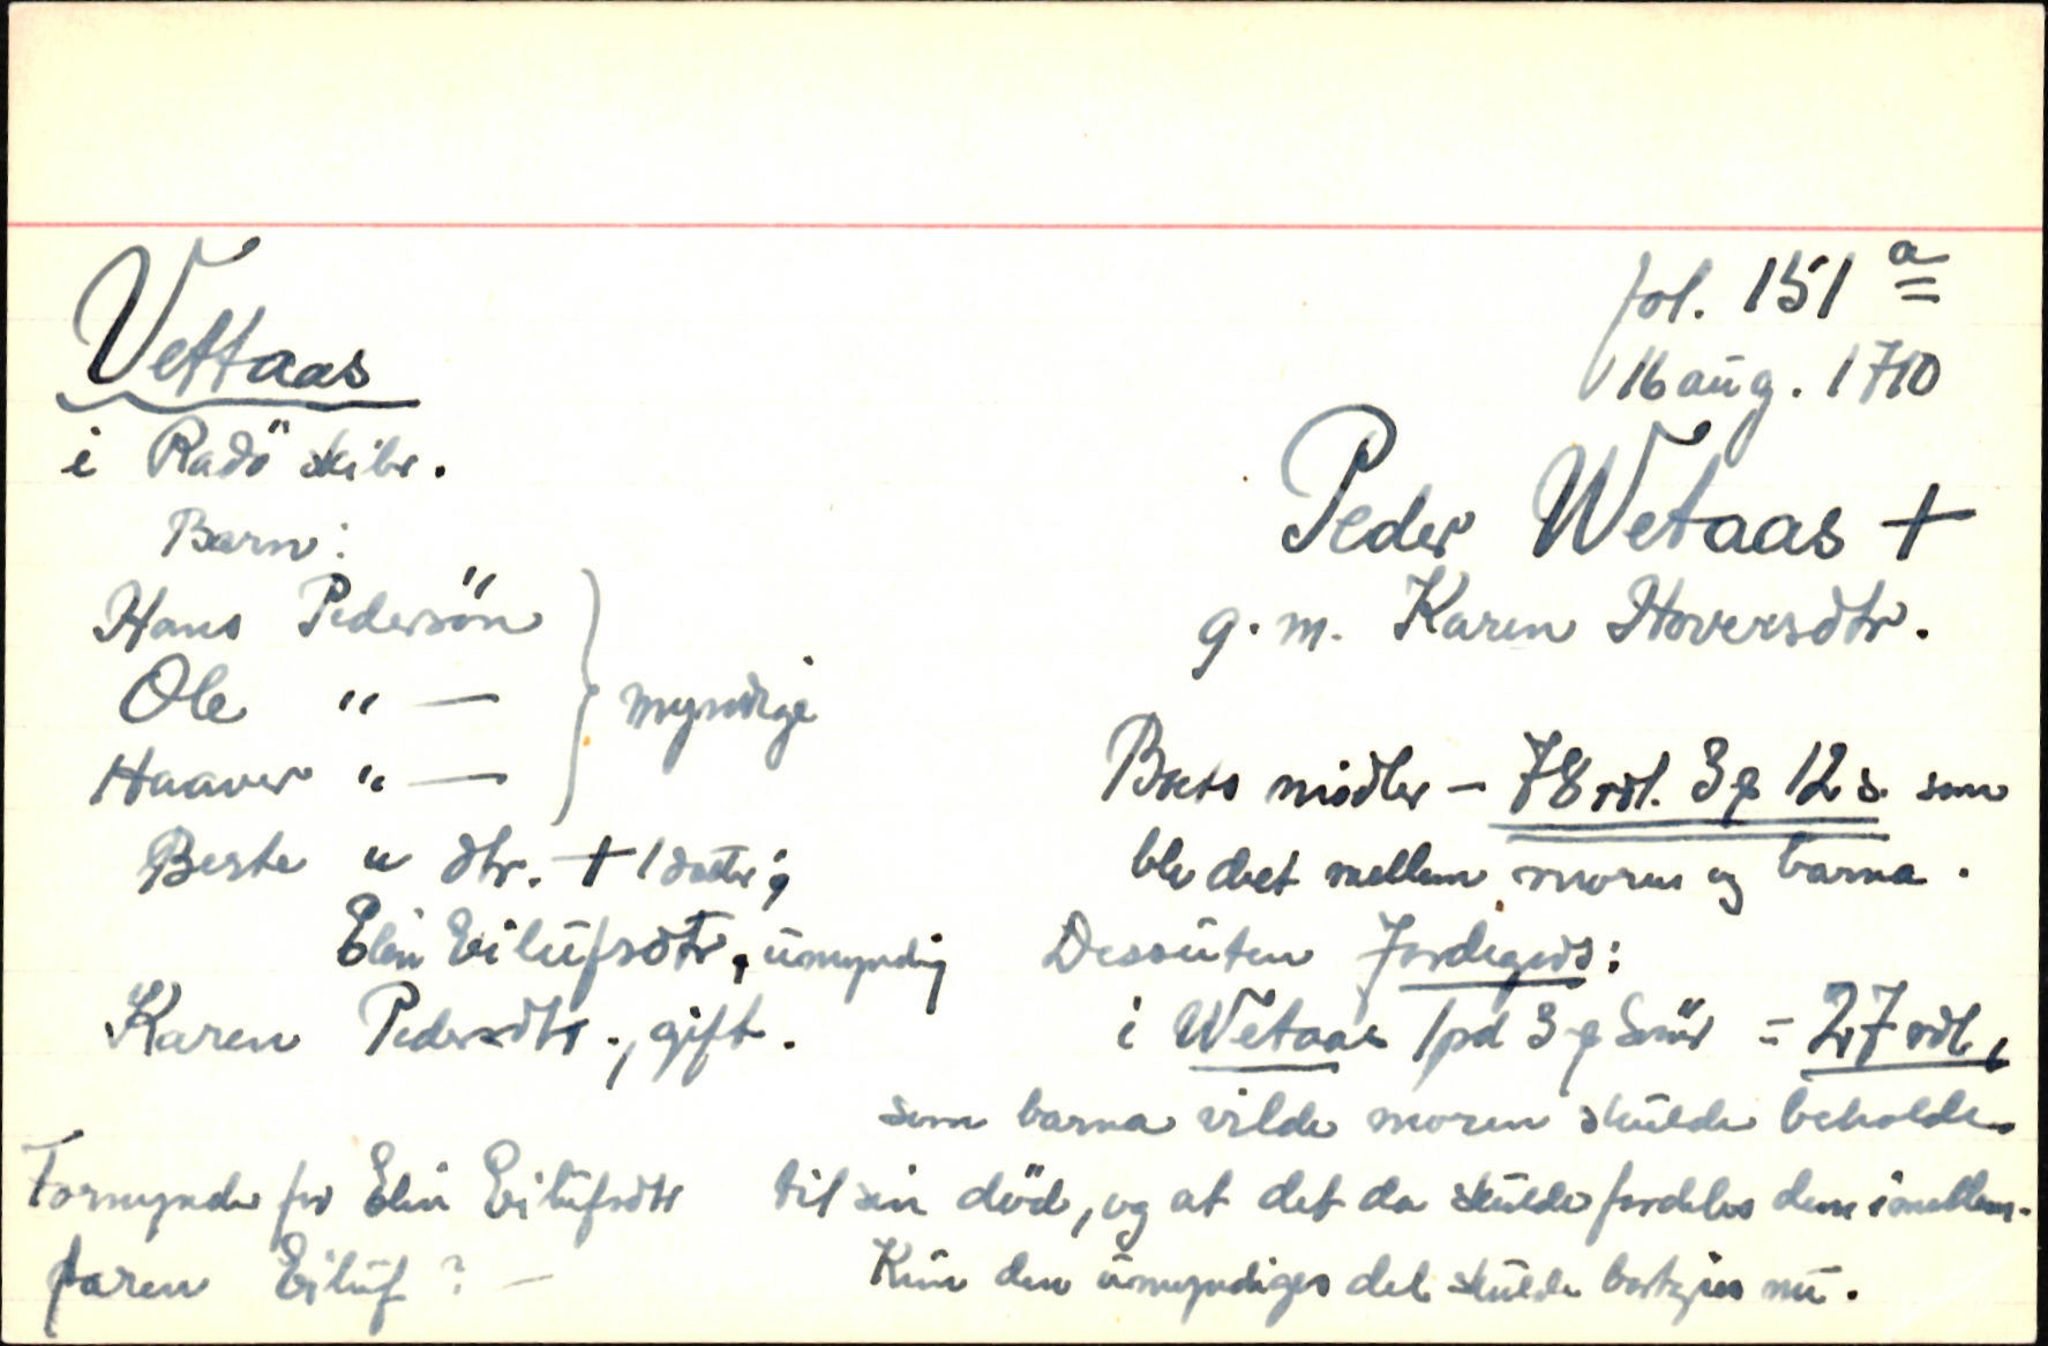 Vettaas
i Radö skibr.
Barn:
Hans Pedersön
Ole " —
Haaver " —
myndige
Berte " dtr. + 1 datter;
Elin Eilufsdtr, umyndig
Karen Pedersdtr., gift.
Formynder for Elin Eilufsdtr
faren Eiluf? —
fol. 151 a
16 aug. 1710
Peder Wetaas +
g. m. Karen Hoversdtr.
Boets midler – 78 rdl. 3 12 s. som
ble delt mellem moren og barna.
Dessuten Jordegods:
i Wetaas 1 pd 3 Smör = 27 rdl,
som barna vilde moren skulde beholde
til sin död, og at det da skulde fordeles dem imellem.
Kun den umyndiges del skulde nu.